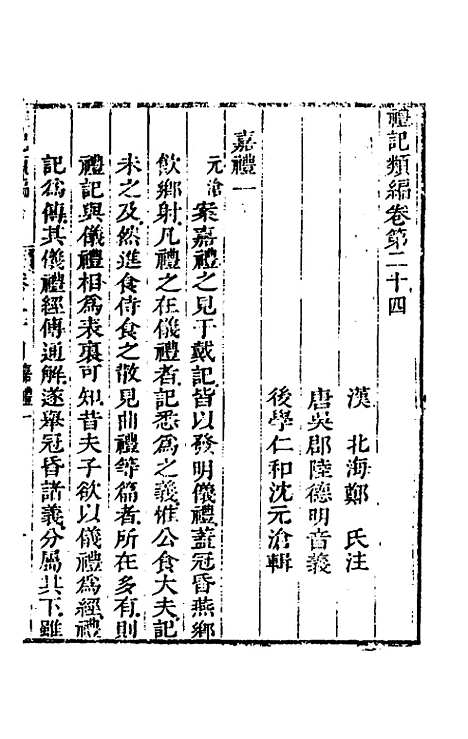 禮記類編卷第二十四
漢北海鄭氏注
唐吳郡陸德明音義
後學仁和沈元滄輯
嘉禮一
元滄案嘉禮之見于戴記皆以發明儀禮蓋冠昏燕鄉
飲鄉射凡禮之在儀禮者記悉爲之義惟公食大夫記
未之及然進食侍食之散見曲禮等篇者所在多有則
禮記與儀禮相爲表裏可知昔夫子欲以儀禮爲經禮
記爲傳其儀禮經傳通解遂舉冠昏諸義分屬其下雖